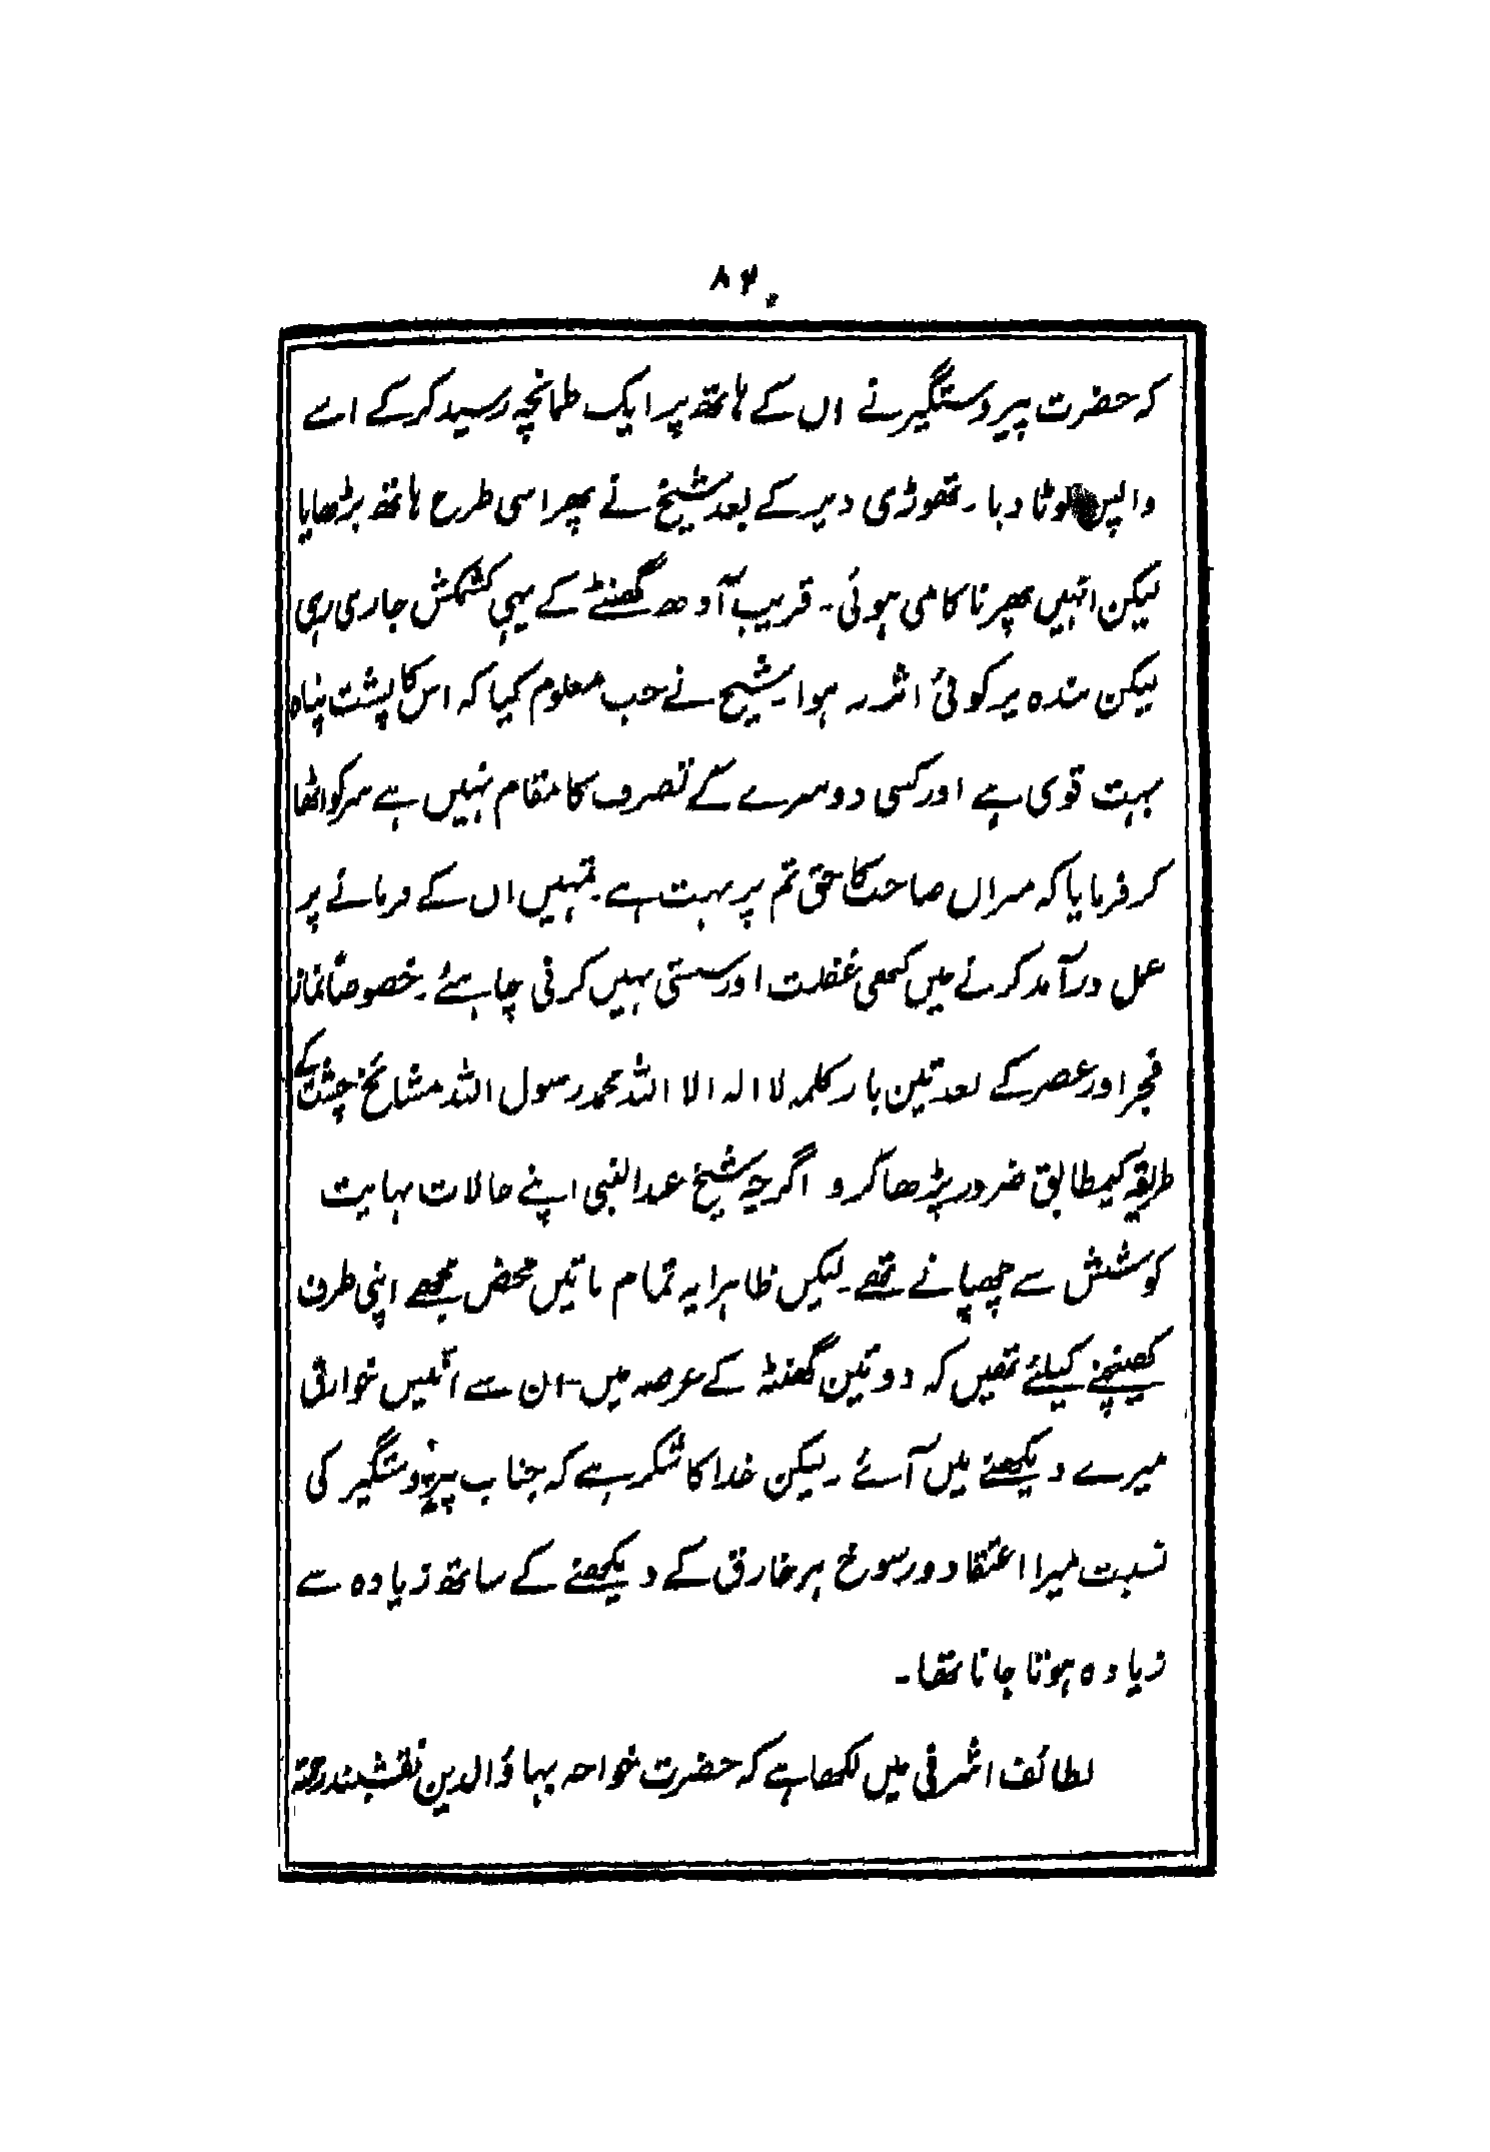 ۸۲۰
کہ حضرت پیر دستگیر نے ان کے ہاتھ پر ایک طمانچہ رسید کر کے اسے
واپس لوٹا دیا۔ تھوڑی دیر کے بعد شیخ نے پھر اسی طرح ہاتھ بڑھایا
لیکن انہیں پھر ناکامی ہوئی۔ قریب آدھ گھنٹے کے یہی کشمکش جاری رہی
لیکن بندہ پر کوئی اثر نہ ہوا۔ شیخ نے جب معلوم کیا کہ اس کا پشت پناہ
بہت قوی ہے اور کسی دوسرے کے تصرف کا مقام نہیں ہے سر کو اٹھا
کر فرمایا کہ میراں صاحب کا حق تم پر بہت ہے۔ تمہیں ان کے فرمانے پر
عمل درآمد کرنے میں کبھی غفلت اور سستی نہیں کرنی چاہئے۔ خصوصاً نماز
فجر اور عصر کے بعد تین بار کلمہ لا الہ الا اللہ محمد رسول اللہ مشائخ چشت کے
طریقہ کیمطابق ضرور پڑھا کرو اگرچہ شیخ عبدالنبی اپنے حالات نہایت
کوشش سے چھپاتے تھے۔ لیکن ظاہرا یہ تمام باتیں محض مجھے اپنی طرف
کھینچنے کیلئے تھیں کہ دو تین گھنٹہ کے عرصہ میں ان سے انیس خوارق
میرے دیکھنے میں آئے۔ لیکن خدا کا شکر ہے کہ جناب پیر دستگیر کی
نسبت میرا اعتقاد و رسوخ ہر خارق کے دیکھنے کے ساتھ زیادہ سے
زیادہ ہوتا جاتا تھا۔
لطائف اشرفی میں لکھا ہے کہ حضرت خواجہ بہاؤالدین نقشبند رحمتہ